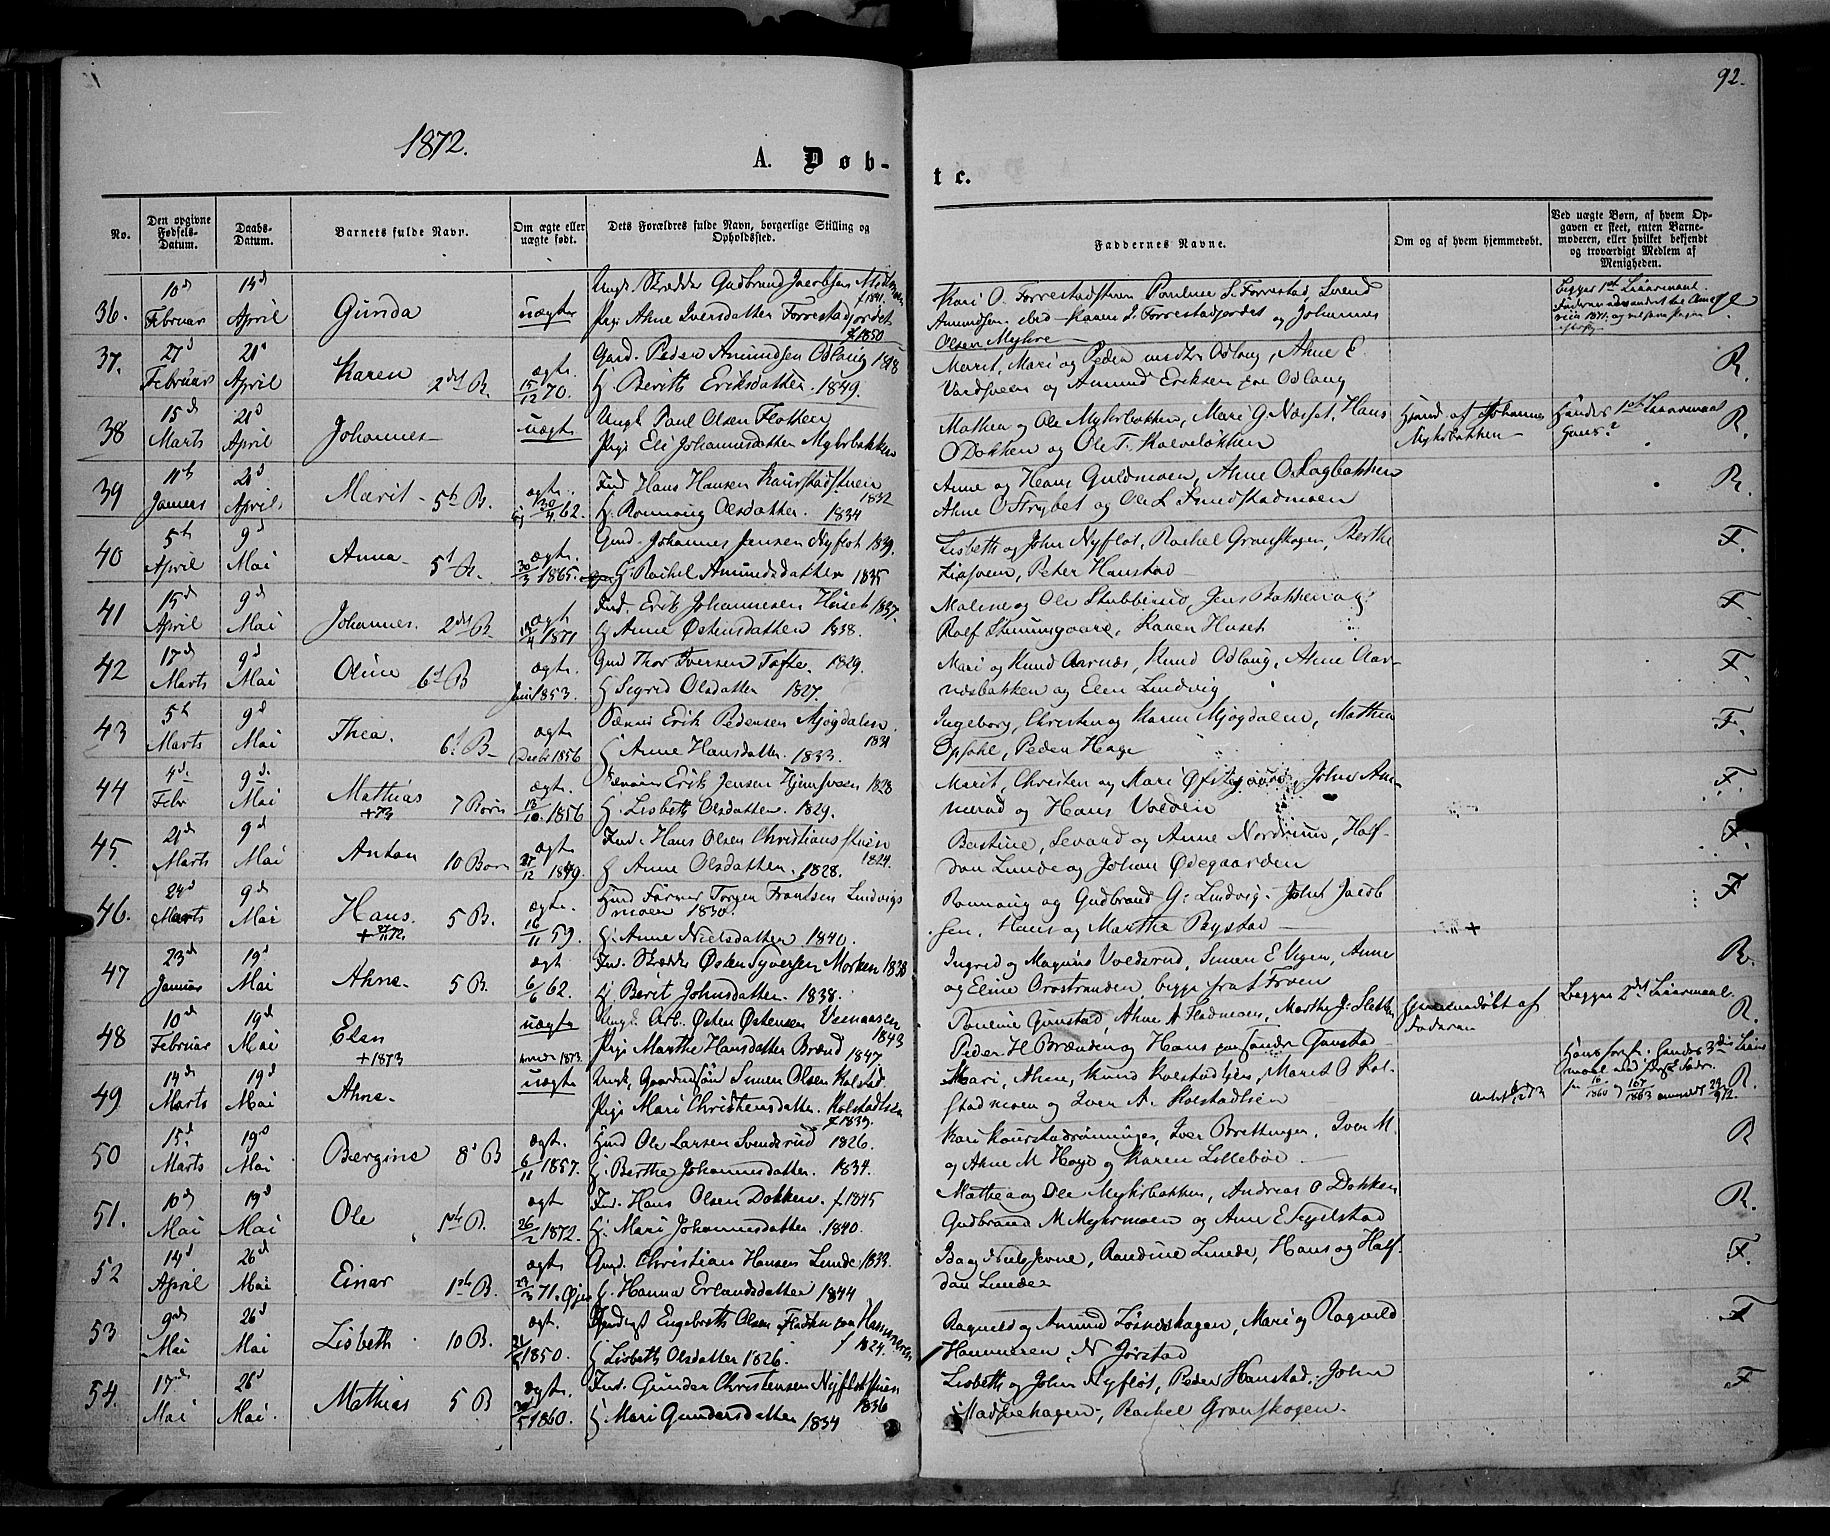 92.
1872.
A. Døb-
t c.
No.
Den opgivne Fødsels-Datum.
Daabs-Datum.
Barnets fulde Navn.
Om ægte eller uægte født.
Dets Forældres fulde Navn, borgerlige Stilling og Opholdssted.
Faddernes Navne.
Om og af hvem hjemmedøbt.
Ved uægte Børn, af hvem Opgaven er skeet, enten Barnemoderen, eller hvilket bekjendt og troværdigt Medlem af Menigheden.
36. 10d Februar April Gunda uægte
Ungk. Skrædder Gudbrand Jacobsen
Pige Ahne Iversdatter Forrestadjordet f 1850
Kari O. Forrestadstuen Pauline S. Forrestad, Svend
Amundsen ibid Karen S. Forrestadjordet og Johannes
Olsen Myhre
Begges 1st Leiermaal
37. 27d Februar 21d April Karen 2det B. ægte 15/12 70.
Gard. Peder Amundsen Odlaug 1848
H. Berith Eriksdatter. 1849.
Marit, Mari og Peder Odlaug, Ahne E.
og Amund Eriksen Odlaug
R.
38 15d Marts 21d April Johannes uægte
Ungk. Paul Olsen Flotten
Pige Eli Johannesdatter Myhrbakken
Mathea og Ole Myhrbakken, Mari G Næset, Hans
O Dokken og Ole T. Kalveløkken
af Johannes Myhrbakken
Hendes 1ste Leiermaal
R.
39 11te Januar 21d April Marit 5te B. ægte 62.
Ind Hans Hansen Kaurstadstuen 1832
H. Ronnaug Olsdatter. 1834
Anne og Hans Guldmoen, Ahne O Hagbakken
Ahne O Strybet og Ole L Sundstadmoen
R.
40 5te April 9d Mai Anna 5te B. ægte 30/3 1865.
Gmd. Johannes Jensen Nyflot 1839.
H. Rachel Amundsdatter 1835
Lisbeth og John Nyflot, Rachel Granskogen, Berthe
Liasveen, Peter Hanstad
F.
41 15d April 9d Mai Johannes. 2det B. ægte 1871
Ind. Erik Johannesen Huset 1837.
H Anne Østensdatter 1838.
Malene og Ole Stubberud, Jens Bakken og
Rolf, Karen Huset
F
42 17d Marts 9d Mai Oline 6te B ægte. 1853.
Gmd Thor Iversen Tofte. 1829.
H Sigrid Olsdatter 1827.
Mari og Knud Aarnæs, Knud Odlaug, Ahne Aar-
næsbakken og Elen Lindvig
F
43 5te Marts 9d Mai Thea. 6te B ægte Decbr 1856
Erik Pedersen Mjøgdalen 1831
H Anne Hansdatter. 1833.
Ingeborg, Christen og Karen Mjøgdalen, Mathea
Opsahl, Peder Hage
F.
44 4d Febr 9d Mai Mathias +73 7 Børn ægte 18/10 1856
Erik Jensen 1828
H. Lisbeth Olsdatter. 1829.
Marit, Christen og Mari Øfstegaard, John Am-
merud og Hans Volden
F
45. 21d Marts 9d Mai Anton 10 Børn ægte 27/12 1849.
Ind. Hans Olsen Christiansstuen 1824.
H Anne Olsdatter. 1828.
Bestine, Sevard og Anne Nordrum, Half-
dan Lunde og Johan Ødegaarden
F.
46. 24d Marts 9d Mai Hans. 5 B. ægte. 16/11 59.
Torger Frantsen Lindvigs
moen 1830.
H. Anne Nielsdatter 1840.
Ronnaug og Gudbrand G: Lindvig. John Jacob
sen, Hans og Marthe Røystad
F
47 23d Januar 19d Mai Ahne. 5 B. ægt 6/6 62.
Ind. Skrædder Østen Syversen Morken 1838
H. Berit Johnsdatter. 1838.
Ingrid og Magnus Voldsrud, Simen E Vigen, Anne
og Eline Orostranden begge fra Fron
R.
48 10d Februar 19d Mai Elen +1873 uægte
Ungk. Arb. Østen Østensen Vesaasen 1843
Pige Marthe Hansdatter Brænd 1847
Pauline Gunstad, Ahne A Hadmoen, Marthe J. Sletten
Peder H Brænden og Hans Gunstad
Hjemmedøbt af Faderen
Begges 2det Leiermaal.
R.
49 14d Marts 19d Mai Ahne. uægte
Ungk. Gaardmdsøn Simen Olsen Kolstad.
Pige Mari Christensdatter. Kolstadlien f 1839.
Mari, Ahne, Knud Kolstadlien, Marit O Kol-
stadmoen og Iver A. Kolstadlien
R.
50 15d Marts 19d Mai Bergine 8d B ægte. 6/11 1857.
Gmd Ole Larsen Svendsrud 1826.
H. Berthe Johannesdatter. 1834.
Kari Kaurstadrønningen, Iver Brettingen, Iver M.
og Ahne M Høye og Karen Lillebøe
R
51. 10d Mai 19d Mai Ole 1ste B. ægt 26/2 1872.
Ind. Hans Olsen Dokken. f. 1845
H. Mari Johannesdatter. 1840.
Mathea og Ole Myhrbakken, Andreas O Dokken
Gudbrand M Myhrmoen og Ane E Segelstad
R.
52 14d April 26d Mai Einar 1ste B. ægte 71.
Gmd. Christian Hansen Lunde 1833.
H. Hanna Erlandsdatter 1844
og Niels Jevne, Randine Lunde, Hans og Half-
dan Lunde
F.
53 9nde Mai 26d Mai Lisbeth 10 B. ægt. 1850.
Engebreth Olsen Hammeren f 1824.
H Lisbeth Olsdatter 1826.
Ragnild og Amund Løsneshagen, Mari og Ragnild
Hammeren, N Jørstad
F
54. 17nde Mai 26d Mai. Mathias 5 B ægte. 1860.
Ind. Gunder Christensen Nyflotstuen 1836
H Mari Gundersdatter 1834
Lisbeth og John Nyfløt, Peder Hanstad, John
Rachel Granskogen.
F